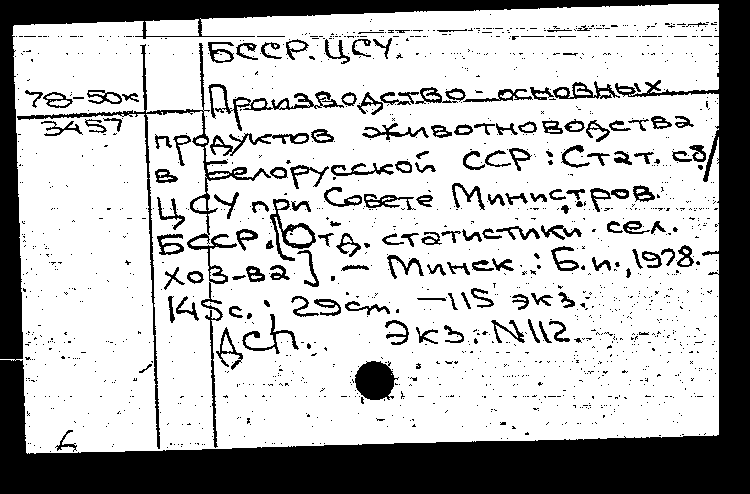 БССР. ЦСУ.
78-50к
3457
Производство основных
продуктов животноводства
в Белорусской ССР : Стат. сб/
ЦСУ при Совете Министров
БССР. [Отд. статистики сел.
хоз-ва]. — Минск : Б.и., 1978. —
145 с. ; 29 см. — 115 экз.
ДСП. Экз. N 112.